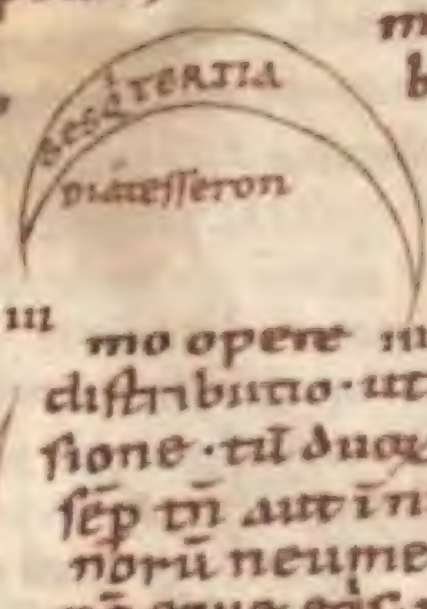 m
b
sesq̇TERTIA
DIatesseron
III
mo opere
distributio· ut
sione· tū duoꝝ
sēp tn̄ aut in
norū neume